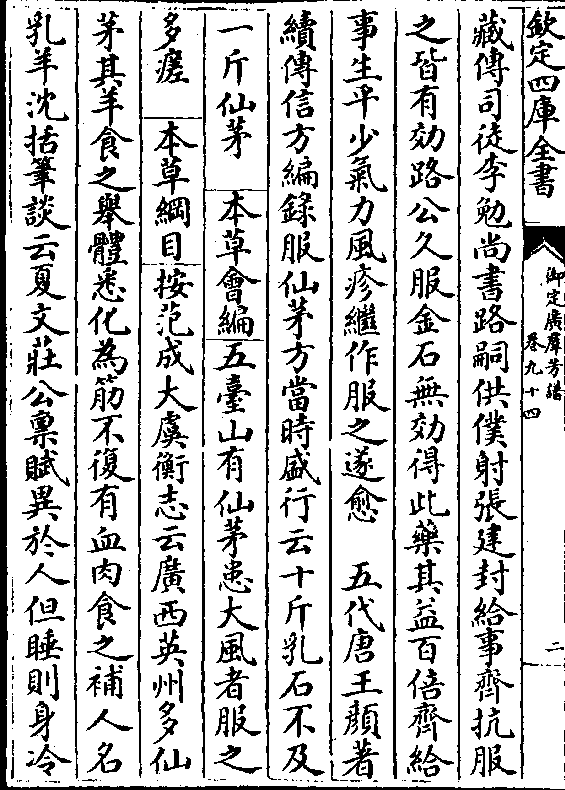 欽定四庫全書
御定廣羣芳譜
卷九十四
二
藏傳司徒李勉尚書路嗣供僕射張建封給事齊抗服
之皆有効路公久服金石無効得此藥其益百倍齊給
事生平少氣力風疹繼作服之遂愈　五代唐王顏著
續傳信方編録服仙茅方當時盛行云十斤乳石不及
一斤仙茅　本草會編五臺山有仙茅患大風者服之
多瘥　本草綱目按范成大虞衡志云廣西英州多仙
茅其羊食之舉體悉化為筋不復有血肉食之補人名
乳羊沈括筆談云夏文莊公禀賦異於人但睡則身冷